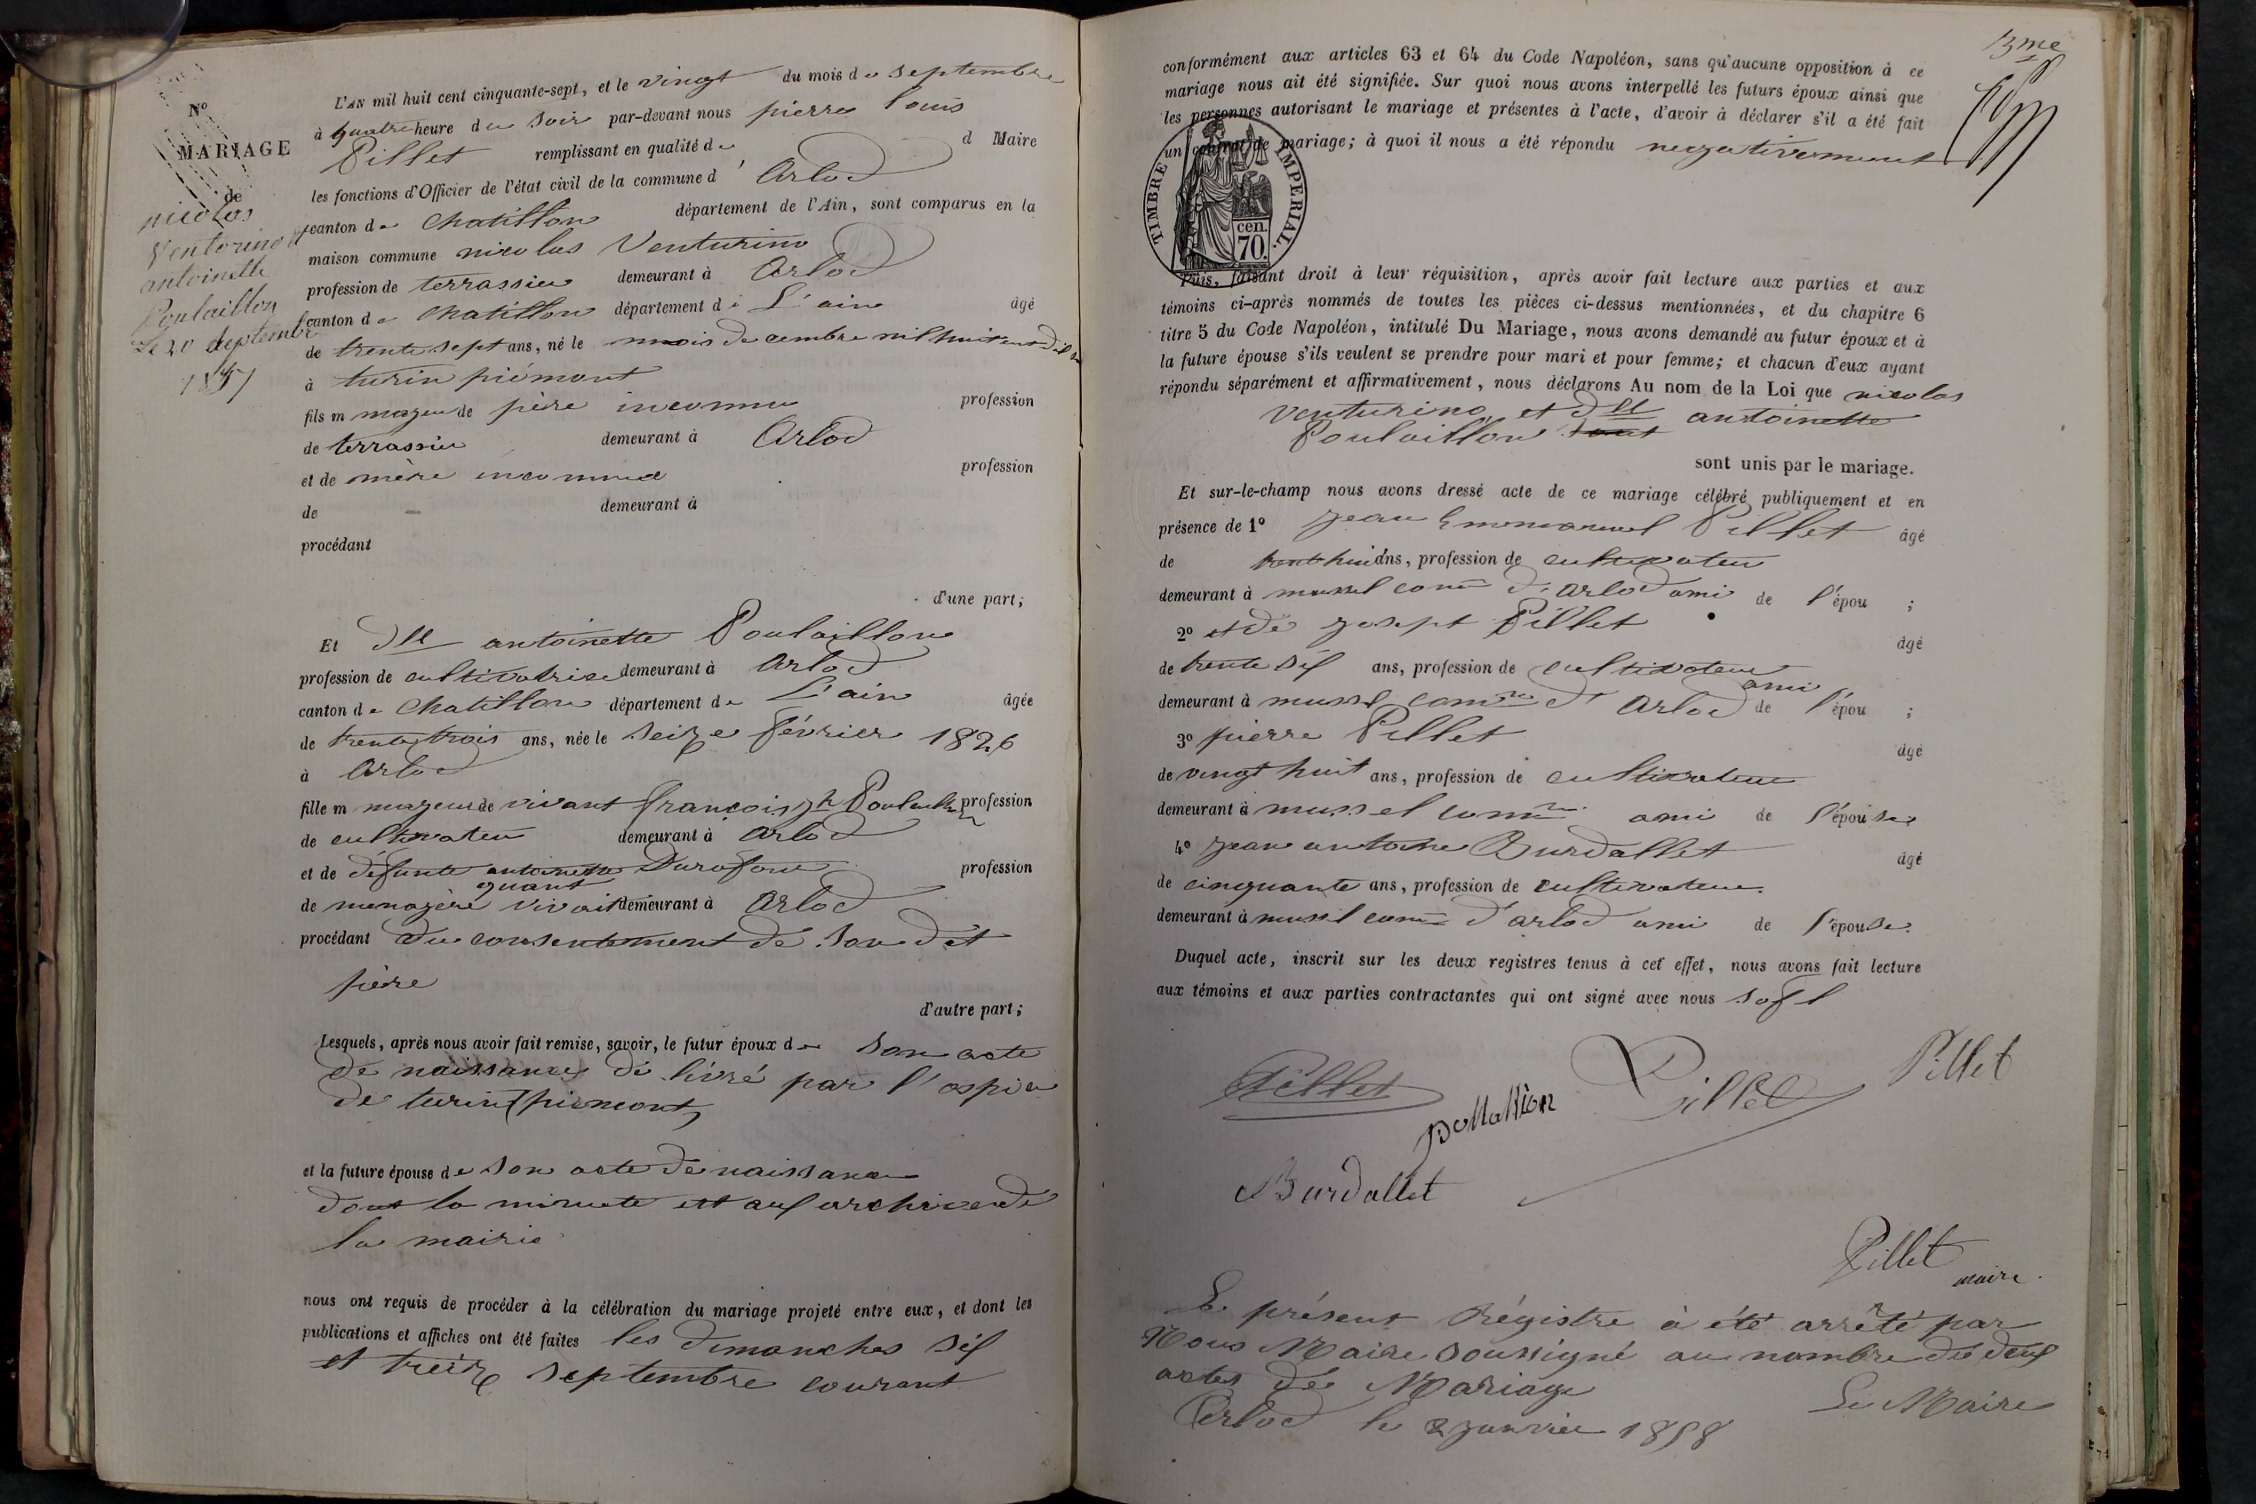 N°
MARIAGE
de
nicolas
Venturino et
antoinette
Poulaillon
Le 20 septembre
1857
L'AN mil huit cent cinquante-sept, et le vingt du mois de septembre
à quatre heure du soir par-devant nous pierre louis
Pillet remplissant en qualité de d Maire
les fonctions d'Officier de l'état civil de la commune d' Arlod
canton de Chatillon département de l'Ain, sont comparus en la
maison commune nicolas Venturino
profession de terrassier demeurant à Arlod
canton de Chatillon département de L'ain âgé
de trente sept ans, né le mois de cembre mil huit cent
à turin piémont
fils m majeur de père inconnu profession
de terrassier demeurant à Arlod
et de mère inconnue profession
de demeurant à
procédant
d'une part;
Et Dlle antoinette Poulaillon
profession de cultivatrice demeurant à Arlod
canton de Chatillon département de L'ain âgée
de trente trois ans, née le seize février 1826
à Arlod
fille m majeur de vivant françois jh Poulaillon profession
de cultivateur demeurant à Arlod
et de défunte antoinette Durafour profession
quant
de menagère vivait demeurant à Arlod
procédant du consentement de son dit
père
d'autre part;
Lesquels, après nous avoir fait remise, savoir, le futur époux de son acte
de naissance dé livré par l'ospice
de turin (piemont)
et la future épouse de son acte de naissance
dont la minute est aux archives de
la mairie
nous ont requis de procéder à la célébration du mariage projeté entre eux, et dont les
publications et affiches ont été faites les dimanches six
et treize septembre courant
13me
conformément aux articles 63 et 64 du Code Napoléon, sans qu'aucune opposition à ce
mariage nous ait été signifiée. Sur quoi nous avons interpellé les futurs époux ainsi que
les personnes autorisant le mariage et présentes à l'acte, d'avoir à déclarer s'il a été fait
un contrat de mariage; à quoi il nous a été répondu negativement
TIMBRE IMPÉRIAL.
cen.
70.
Puis, faisant droit à leur réquisition, après avoir fait lecture aux parties et aux
témoins ci-après nommés de toutes les pièces ci-dessus mentionnées, et du chapitre 6
titre 5 du Code Napoléon, intitulé Du Mariage, nous avons demandé au futur époux et à
la future épouse s'ils veulent se prendre pour mari et pour femme; et chacun d'eux ayant
répondu séparément et affirmativement, nous déclarons Au nom de la Loi que nicolas
venturino et Dlle antoinette
Poulaillon sont
sont unis par le mariage.
Et sur-le-champ nous avons dressé acte de ce mariage célébré publiquement et en
présence de 1° jean Emmanuel Pillet âgé
de trent huit ans, profession de cultivateur
demeurant à mussel comne d'Arlod ami de l'épou ;
2° et de joseph Pillet
âgé
de trente six ans, profession de cultivateur
ami
demeurant à mussel comne d' Arlod de l'épou ;
3° pierre Pillet
âgé
de vingt huit ans, profession de cultivateur
demeurant à mussel comne ami de l'épouse
4° jean antoine Burdallet
âgé
de cinquante ans, profession de cultivateur
demeurant à mussel comne d'arlod ami de l'épouse
Duquel acte, inscrit sur les deux registres tenus à cet effet, nous avons fait lecture
aux témoins et aux parties contractantes qui ont signé avec nous
Pillet
Pillet
Pillet
Burdallet
Pillet
maire.
Le présent Régistre à été arrêté par
Nous Maire soussigné au nombre de deux
actes de Mariage
Arlod le 2 janvier 1858
Le Maire